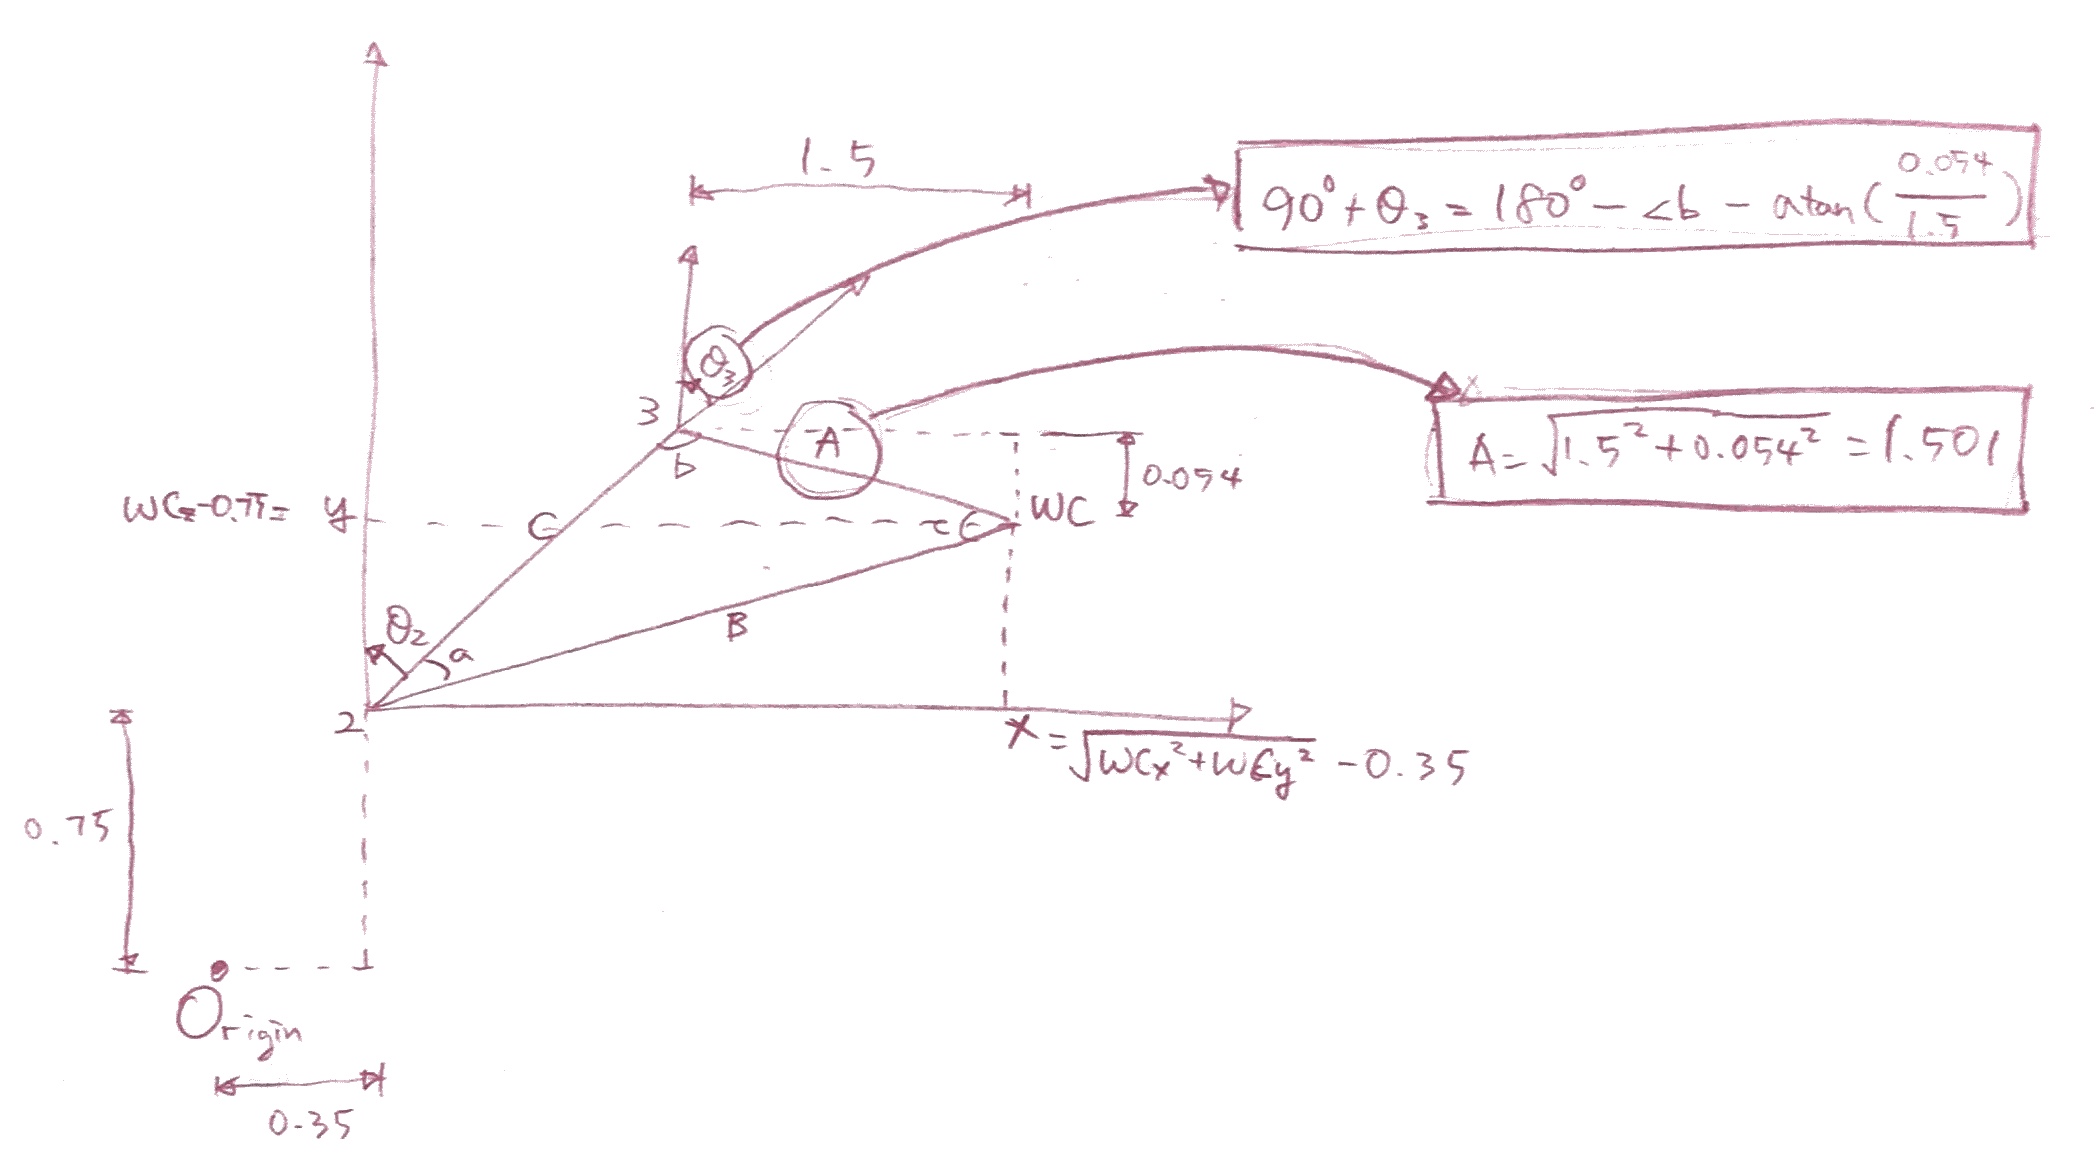 1.5
90° + θ₃ = 180° - ∠b - atan(0.054/1.5)
θ₃
3
A
b
0.054
A = √1.5² + 0.054² = 1.501
WCz-0.75= y
C
c
WC
θ₂
a
B
2
X = √WCx² + WCy² - 0.35
0.75
Origin
0.35